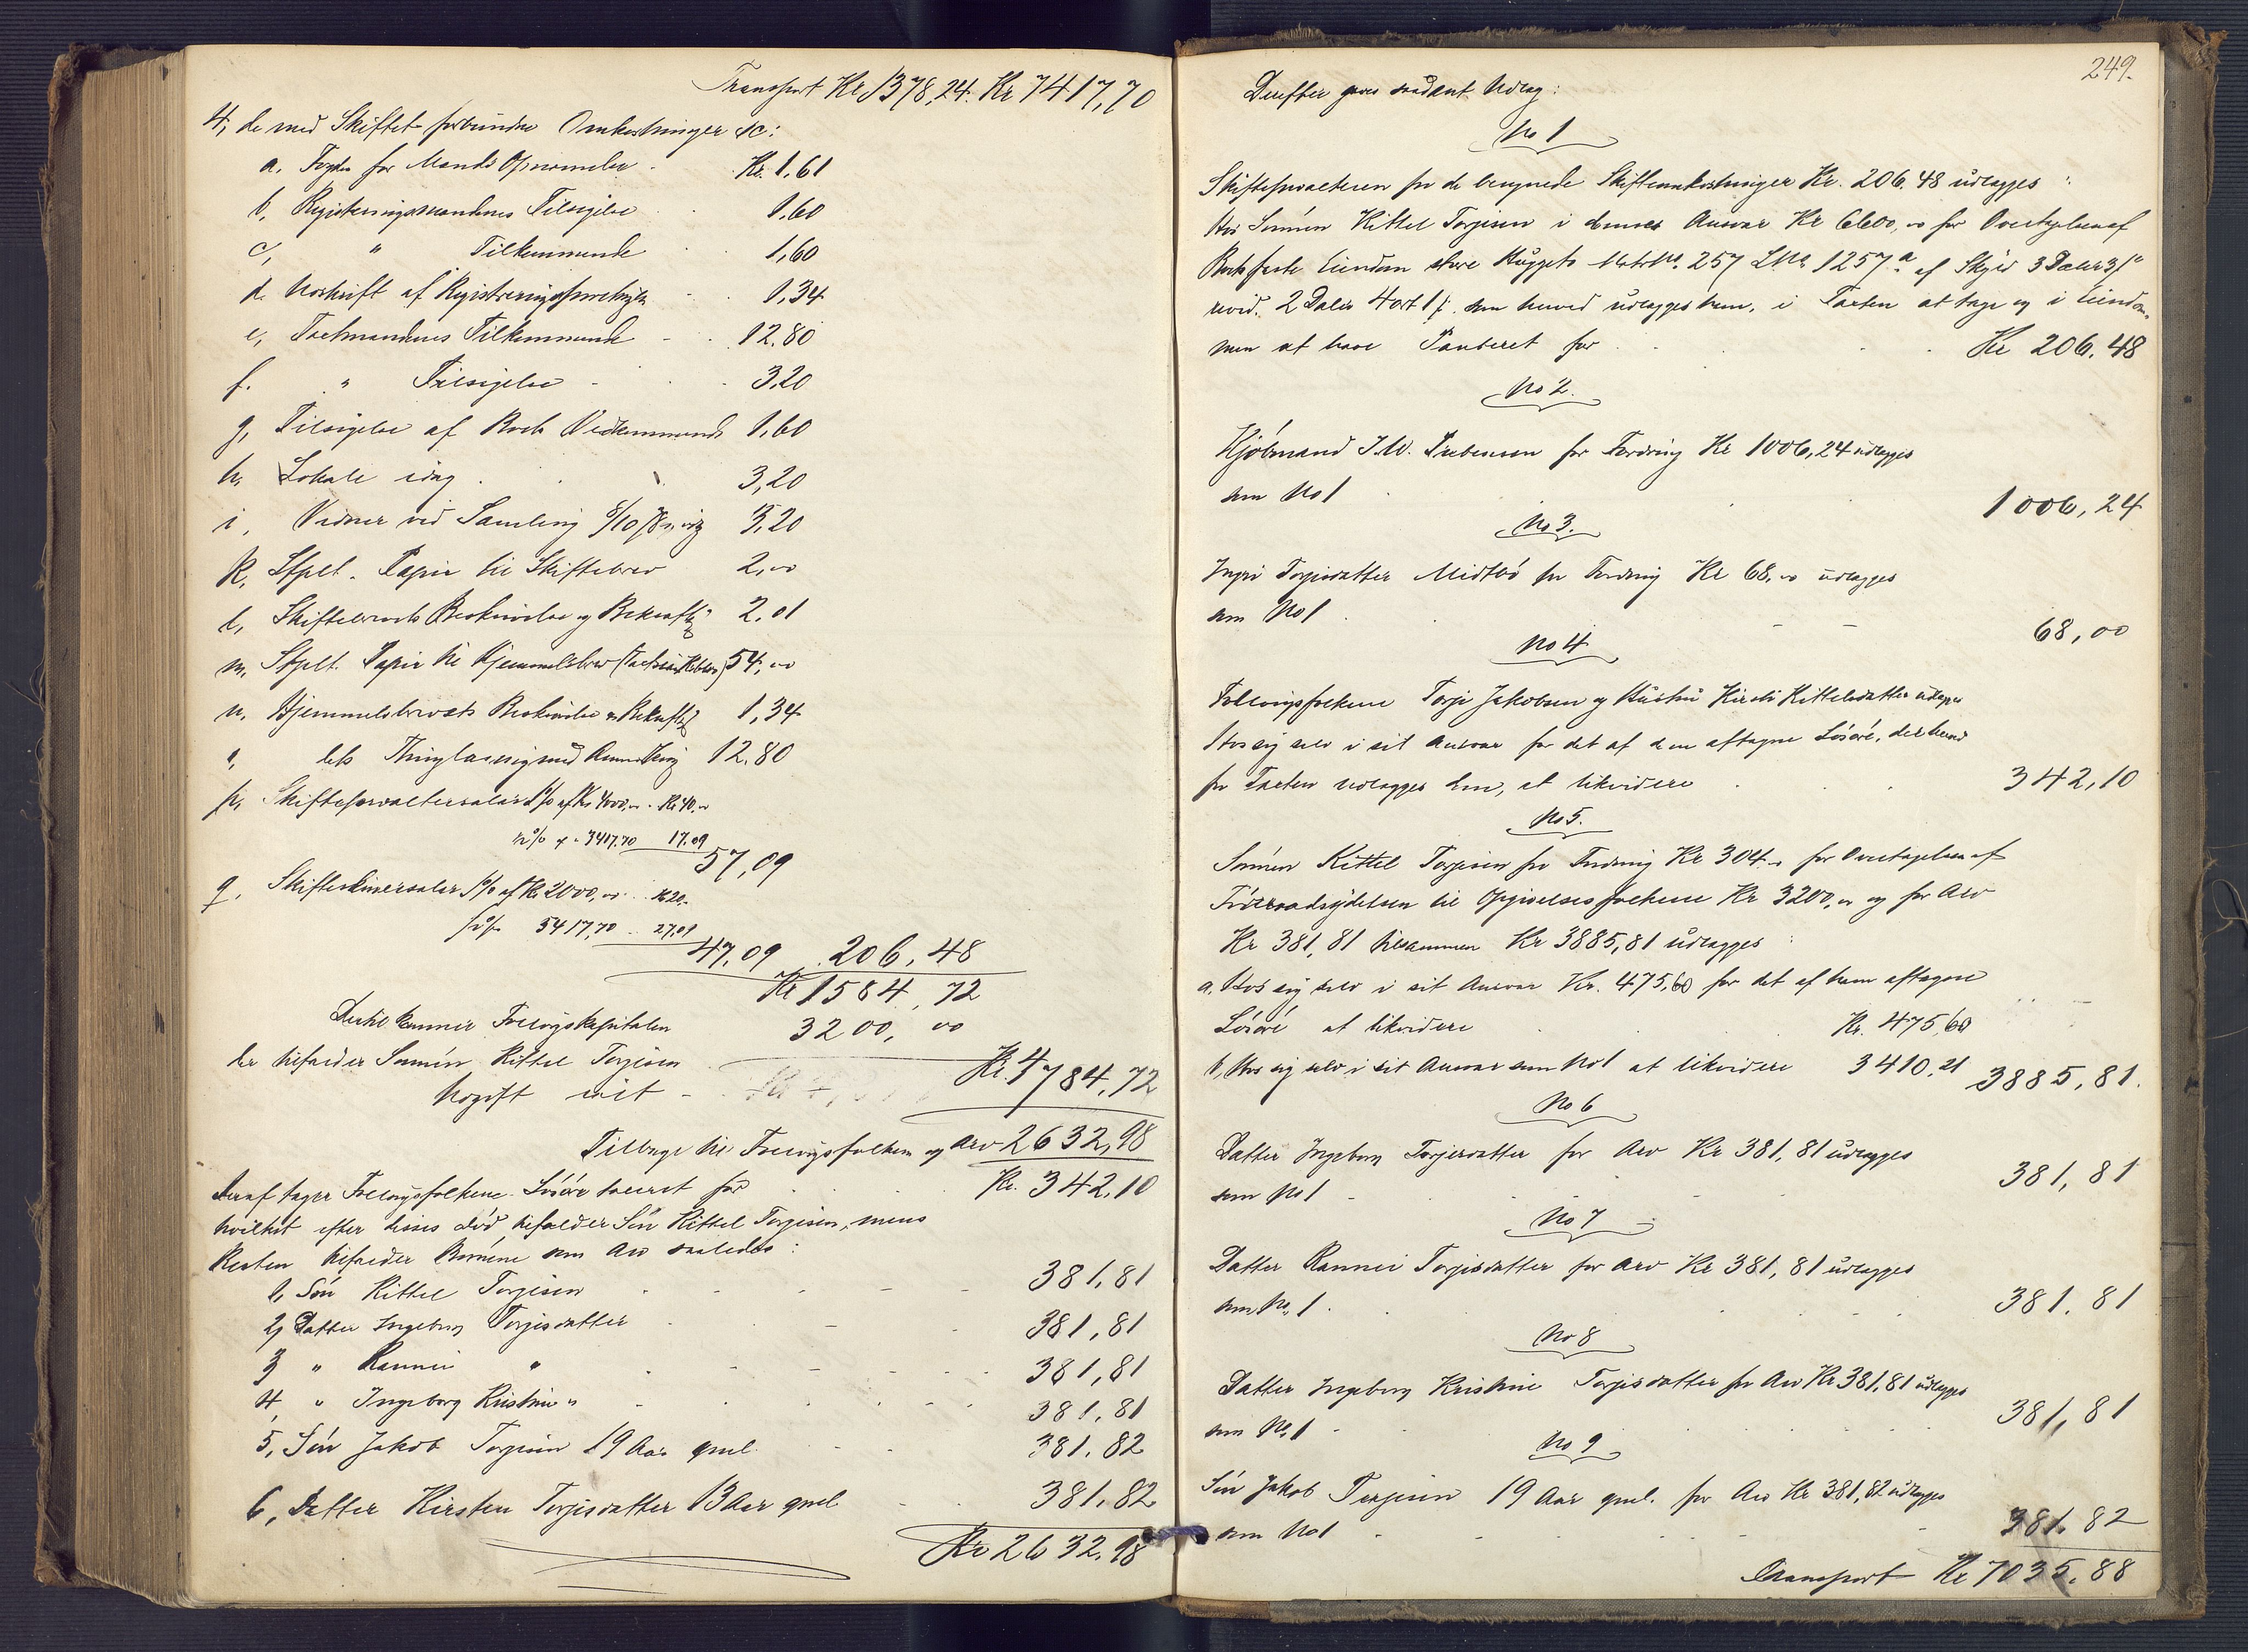 Transport Kr 1378,24. Kr 7417,70
4, de med Skiftet forbundne Omkostninger &c:
a. Fogden for Mands Opnævnelse - Kr. 1,61
b, Registreringsmændenes Tilsigelse 1,60
c, " Tilkommende 1,60
d. Udskrift af Registreringsforretngn 1,34
e, Taxtmændenes Tilkommende - 12.80
f. " Tilsigelse - 3,20
g, Tilsigelse af Boets Vedkommende 1,60
h. Lokale idag 3,20
i, Vidner ved Samling 5/10 78 3,20
k, Stplt. Papir til Skiftebrev 2,00
l, Skiftebrevets Beskrivelse og Bekræftg 2.01
m, Stplt. Papir til Hjemmelsbrev 54,00
n, Hjemmelsbrevets Beskrivelse & Bekræftg 1,34
dets Thinglæsning med Anmerkning 12.80
p, Skifteforvaltersalær 1% af Kr 4000,00 - Kr 40,00
½% af - 3417.70 17.09
57,09
q. Skifteskriversalær 1% af Kr 2000,00 Kr 20,-
½% 5417,70 27,09
47,09 206,48
Kr 1584,72
Dertil kommer Følougskapitalen 3200,00
der tilfalder Sønnen Kittel Torjisen
Udgift ialt - Kr. 4784,72
Tilbage til Følougsfolkene og Arv 2632,98
Deraf tager Følougsfolkene Løsøre taxeret for Kr. 342,10
hvilket efter disses Død tilfalder Søn Kittel Torjisen, mens
Resten tilfalder Børnene som Arv saaledes:
1, Søn Kittel Torjisen 381,81
2, Datter Ingeborg Torjisdatter 381,81
3, " Rannei " 381,81
4, " Ingeborg Kristine " 381,81
5, Søn Jakob Torjisen 19 Aar gml. 381,82
6, Datter Kirsten Torjisdatter 13 Aar gml 381,82
Kr 2632,98
249.
Derefter gaves saadant Udlæg:
No 1
Skifteforvalteren for de beregnede Skifteomkostninger Kr. 206,48 udlægges:
Hos Sønnen Kittel Torjisen i dennes Ansvar Kr 6600,00 for Overtagelsen af
Boets faste Eiendom store Matr No. 257 LNo 1257a af Skyld 3 Daler
revid. 2 Daler 4 ort 1 s. som herved udlægges ham, i Taxten at tage og i Eiendom-
men at have Panteret for Kr 206,48
No 2.
Kjøbmand J. W. Prebensen for Fordring Kr 1006,24 udlægges
som No 1 1006,24
No 3.
Ingri Torjisdatter Midtbø for Fordring Kr 68,00 udlægges
som No 1 68,00
No 4
Følougsfolkene Torji Jakobsen og Hustru Kirsti Kittelsdatter udlægges
Hos sig selv i sit Ansvar for det af dem aftagne Løsøre, der herved
for Taxten udlægges dem, at likvidere 342,10
No 5.
Sønnen Kittel Torjisen for Fordring Kr 304,- for Overtagelsen af
Føderaadsydelsen til Opgivelsesfolkene Kr 3200,00 og for Arv
Kr 381,81 tilsammen Kr 3885,81 udlægges:
a. Hos sig selv i sit Ansvar Kr. 475,60 for det af ham aftagne
Løsøre at likvidere Kr. 475,60
b, Hos sig selv i sit Ansvar som No 1 at likvidere 3410,21 3885,81.
No 6
Datter Ingeborg Torjisdatter for Arv Kr 381,81 udlægges
som No 1 - 381,81
No 7
Datter Rannei Torjisdatter for Arv Kr 381,81 udlægges
som No. 1. 381.81
No 8
Datter Ingeborg Kristine Torjisdatter for Arv Kr 381,81 udlægges
som No. 1 381,81
No 9
Søn Jakob Torjisen 19 Aar gml. for Arv Kr 381,82 udlægges
som No 1 381.82
Transport Kr 7035.88